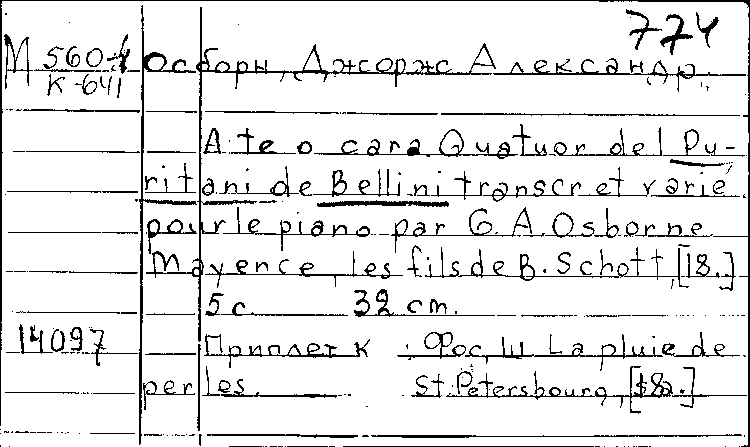 774
М 560-4 Осборн, Джорж Александр.
К-641
A te o cara. Quatuor del Pu-
ritani de Bellini transcr et varie
pour le piano par G. A. Osborne
Mayence, les fils de B. Schott, [18.]
5 с. 32 cm.
14097 Приплет к : Фос, Ш. La pluie de
perles. St. Petersbourg, [18.]